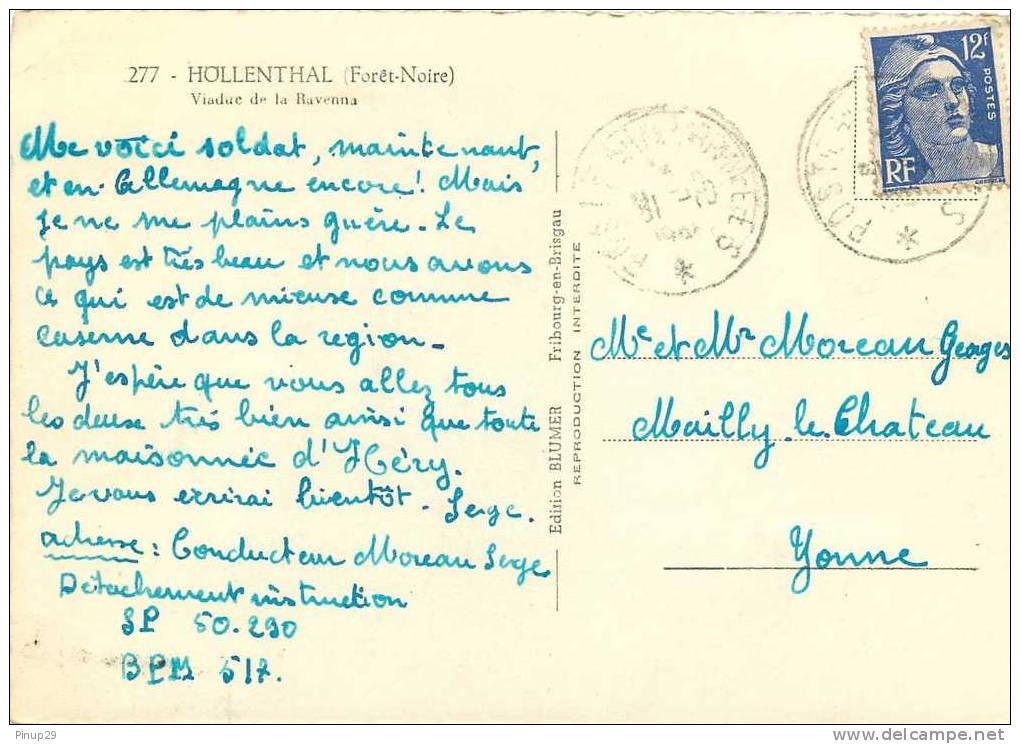 277 - HÖLLENTHAL (Forêt-Noire)
Viaduc de la Ravenna
Me voici soldat, maintenant,
et en Allemagne encore! Mais
je ne me plains guère. Le
pays est très beau et nous avons
ce qui est de mieuse comme
caserne dans la region -
J'espère que vous allez tous
les deuse très bien ainsi que toute
la maisonnée d'Héry.
Je vous ecrirai bientôt. Serge.
adresse : Conducteur Moreau Serge
Détachement instruction
SP 50.290
BPM 517.
Edition BLUMER Fribourg-en-Brisgau
REPRODUCTION INTERDITE
12f
POSTES
RF
POSTE AUX ARMEES
Me et Mr Moreau Georges
Mailly-le-Chateau
Yonne
Pinup29
www.delcampe.net